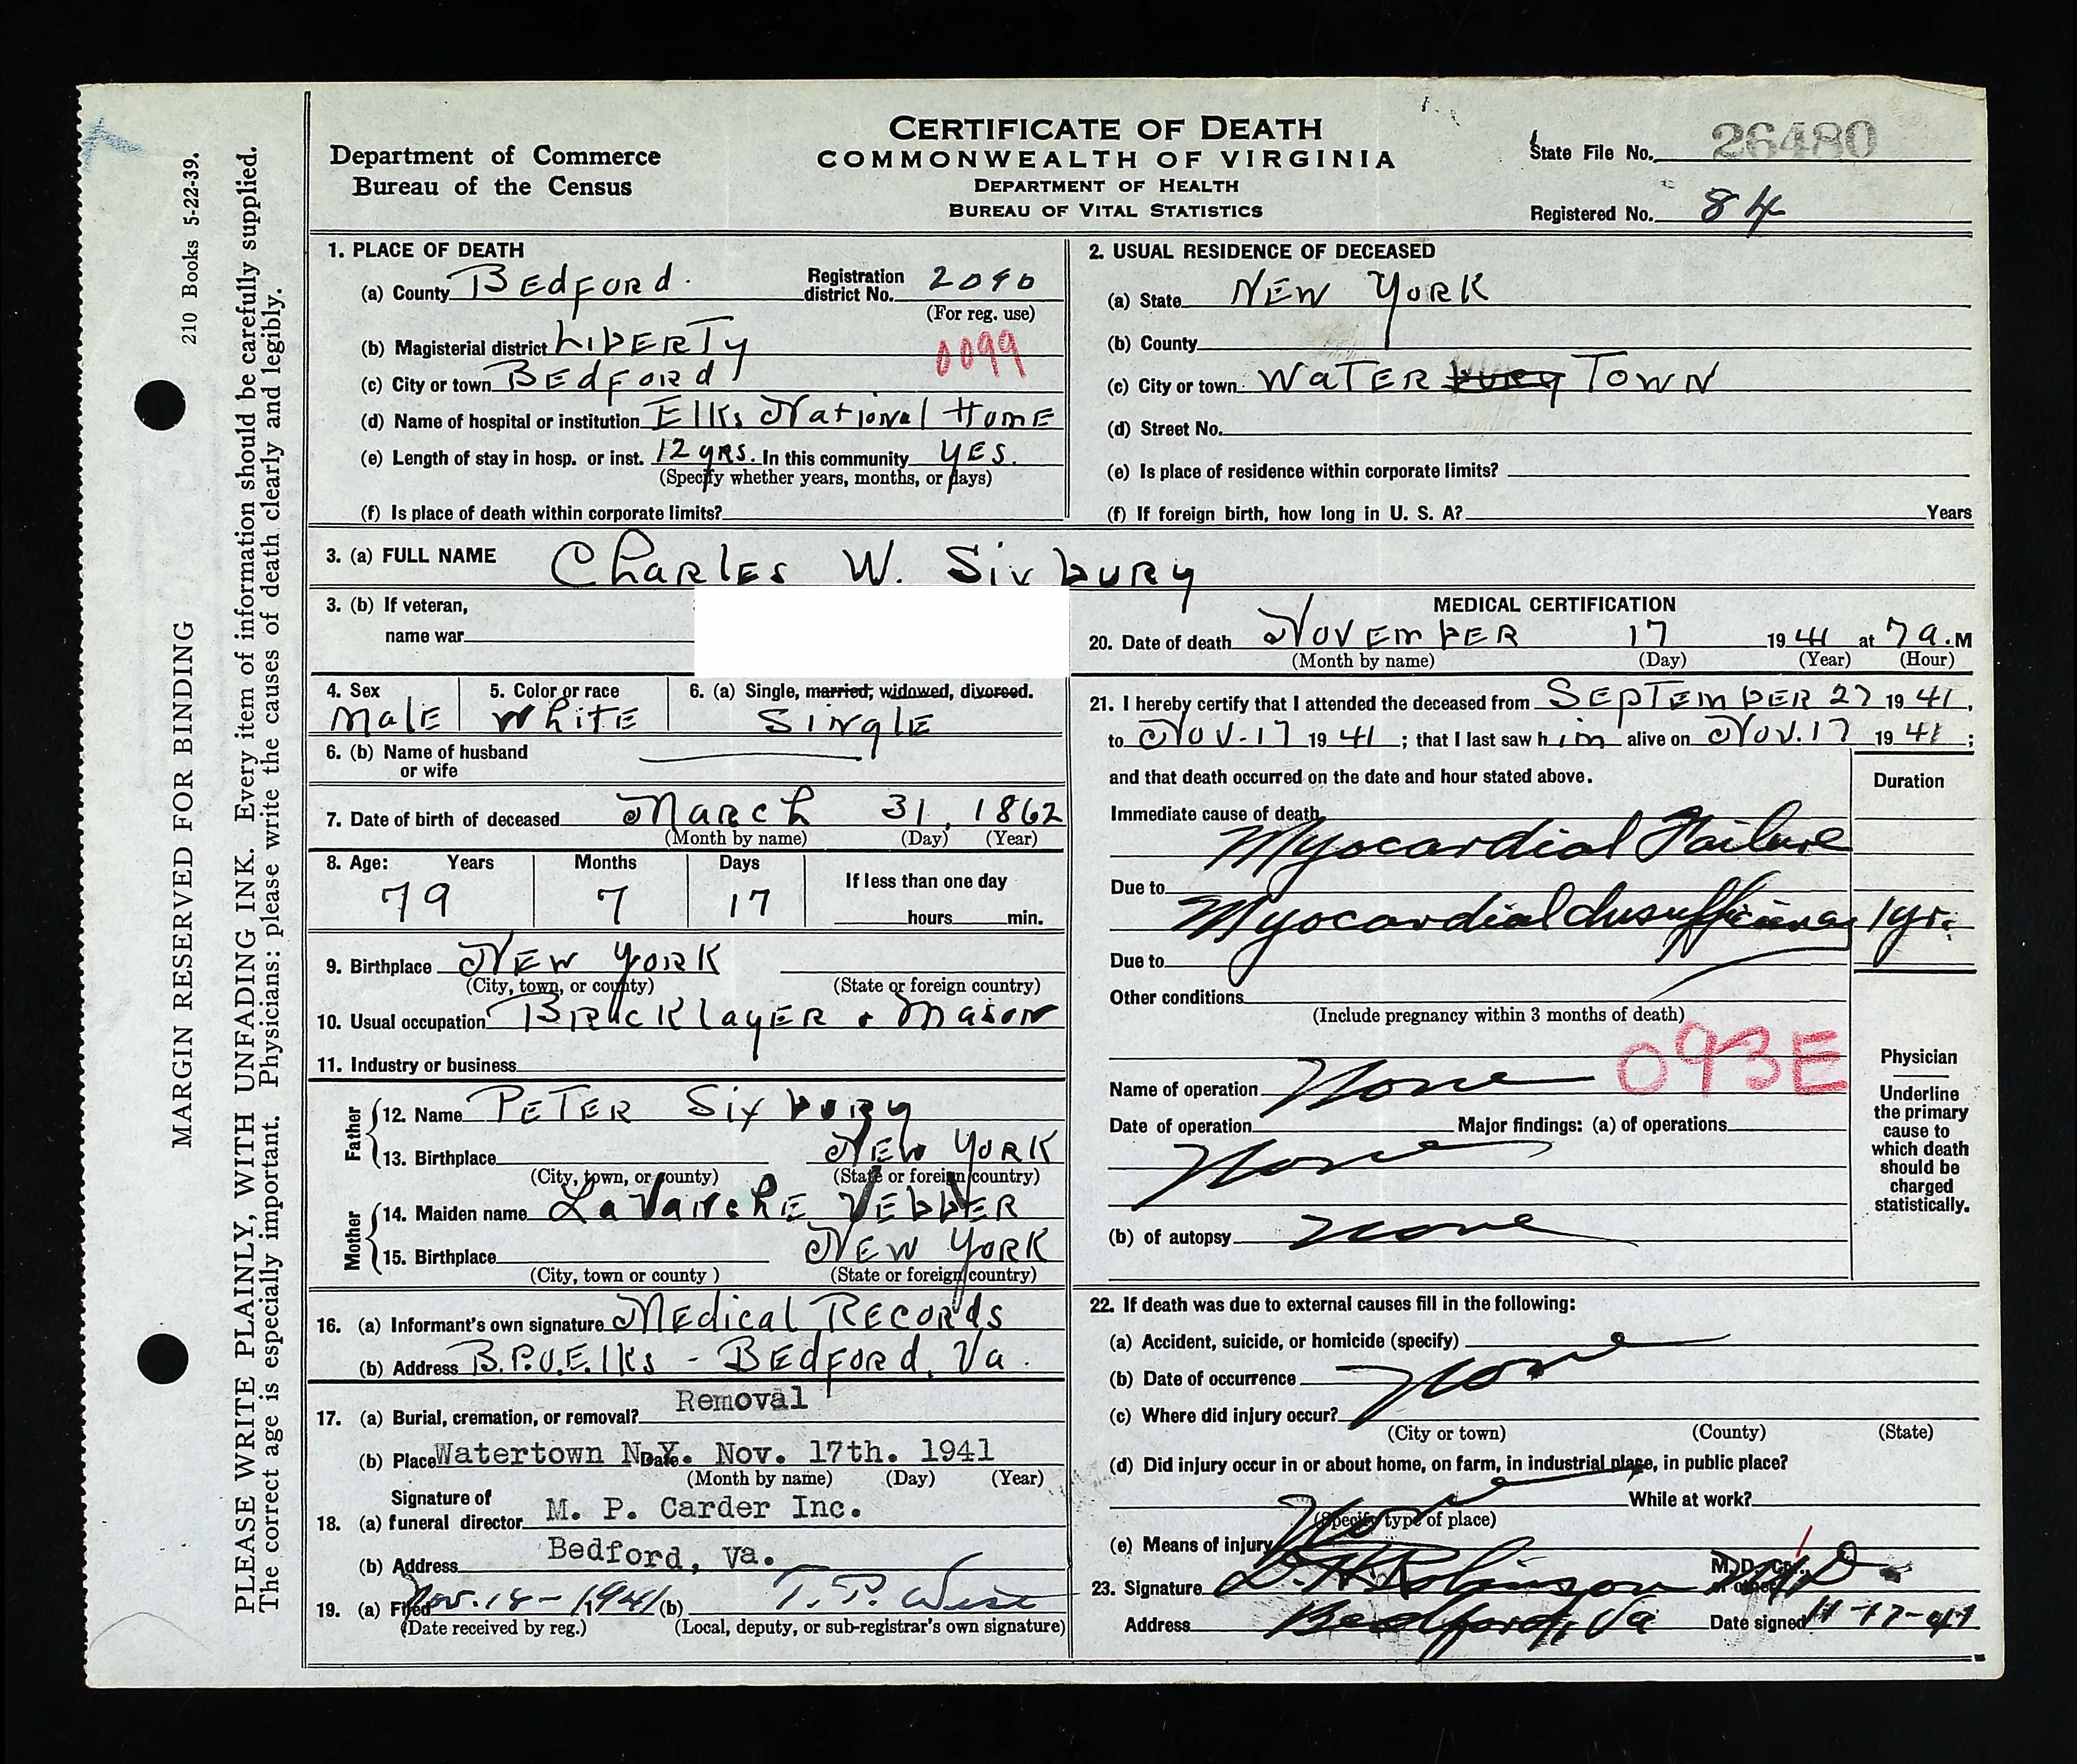 CERTIFICATE OF DEATH
COMMONWEALTH OF VIRGINIA
DEPARTMENT OF HEALTH
BUREAU OF VITAL STATISTICS
Department of Commerce
Bureau of the Census
State File No. 26480
Registered No. 84
210 Books 5-22-39.
MARGIN RESERVED FOR BINDING
PLEASE WRITE PLAINLY, WITH UNFADING INK. Every item of information should be carefully supplied.
The correct age is especially important. Physicians: please write the causes of death clearly and legibly.
1. PLACE OF DEATH
(a) County Bedford. Registration district No. 2090
(For reg. use)
(b) Magisterial district Liberty 0099
(c) City or town Bedford
(d) Name of hospital or institution Elks National Home
(e) Length of stay in hosp. or inst. 12 yrs. In this community yes.
(Specify whether years, months, or days)
(f) Is place of death within corporate limits?
2. USUAL RESIDENCE OF DECEASED
(a) State New York
(b) County
(c) City or town Water bury Town
(d) Street No.
(e) Is place of residence within corporate limits?
(f) If foreign birth, how long in U. S. A? Years
3. (a) FULL NAME Charles W. Sixbury
3. (b) If veteran,
name war
4. Sex Male
5. Color or race White
6. (a) Single, married, widowed, divorced.
Single
6. (b) Name of husband
or wife
7. Date of birth of deceased March 31, 1862
(Month by name) (Day) (Year)
8. Age: Years Months Days
79 7 17
If less than one day
hours min.
9. Birthplace New York
(City, town, or county) (State or foreign country)
10. Usual occupation Bricklayer & Mason
11. Industry or business
Father
12. Name Peter Sixbury
13. Birthplace New York
(City, town, or county) (State or foreign country)
Mother
14. Maiden name Vebber
15. Birthplace New York
(City, town or county ) (State or foreign country)
16. (a) Informant's own signature Medical Records
(b) Address B.P.O.Elks - Bedford, Va.
17. (a) Burial, cremation, or removal? Removal
(b) Place Watertown N.Y. Date Nov. 17th. 1941
(Month by name) (Day) (Year)
Signature of
18. (a) funeral director M. P. Carder Inc.
(b) Address Bedford, Va.
19. (a) Filed Nov. 18 - 1941 (b) T. P. West
(Date received by reg.) (Local, deputy, or sub-registrar's own signature)
MEDICAL CERTIFICATION
20. Date of death November 17 1941 at 7 a.M
(Month by name) (Day) (Year) (Hour)
21. I hereby certify that I attended the deceased from September 27 1941,
to Nov. 17 1941; that I last saw him alive on Nov. 17 1941;
and that death occurred on the date and hour stated above.
Duration
Immediate cause of death
Myocardial Failure
Due to
Myocardial Insufficiency 1 yr.
Due to
Other conditions
(Include pregnancy within 3 months of death)
093E
Name of operation None
Date of operation Major findings: (a) of operations
None
(b) of autopsy none
Physician
Underline
the primary
cause to
which death
should be
charged
statistically.
22. If death was due to external causes fill in the following:
(a) Accident, suicide, or homicide (specify)
(b) Date of occurrence None
(c) Where did injury occur?
(City or town) (County) (State)
(d) Did injury occur in or about home, on farm, in industrial place, in public place?
None While at work?
(Specify type of place)
(e) Means of injury
23. Signature Robinson M D
Address Bedford, Va Date signed 11-17-41